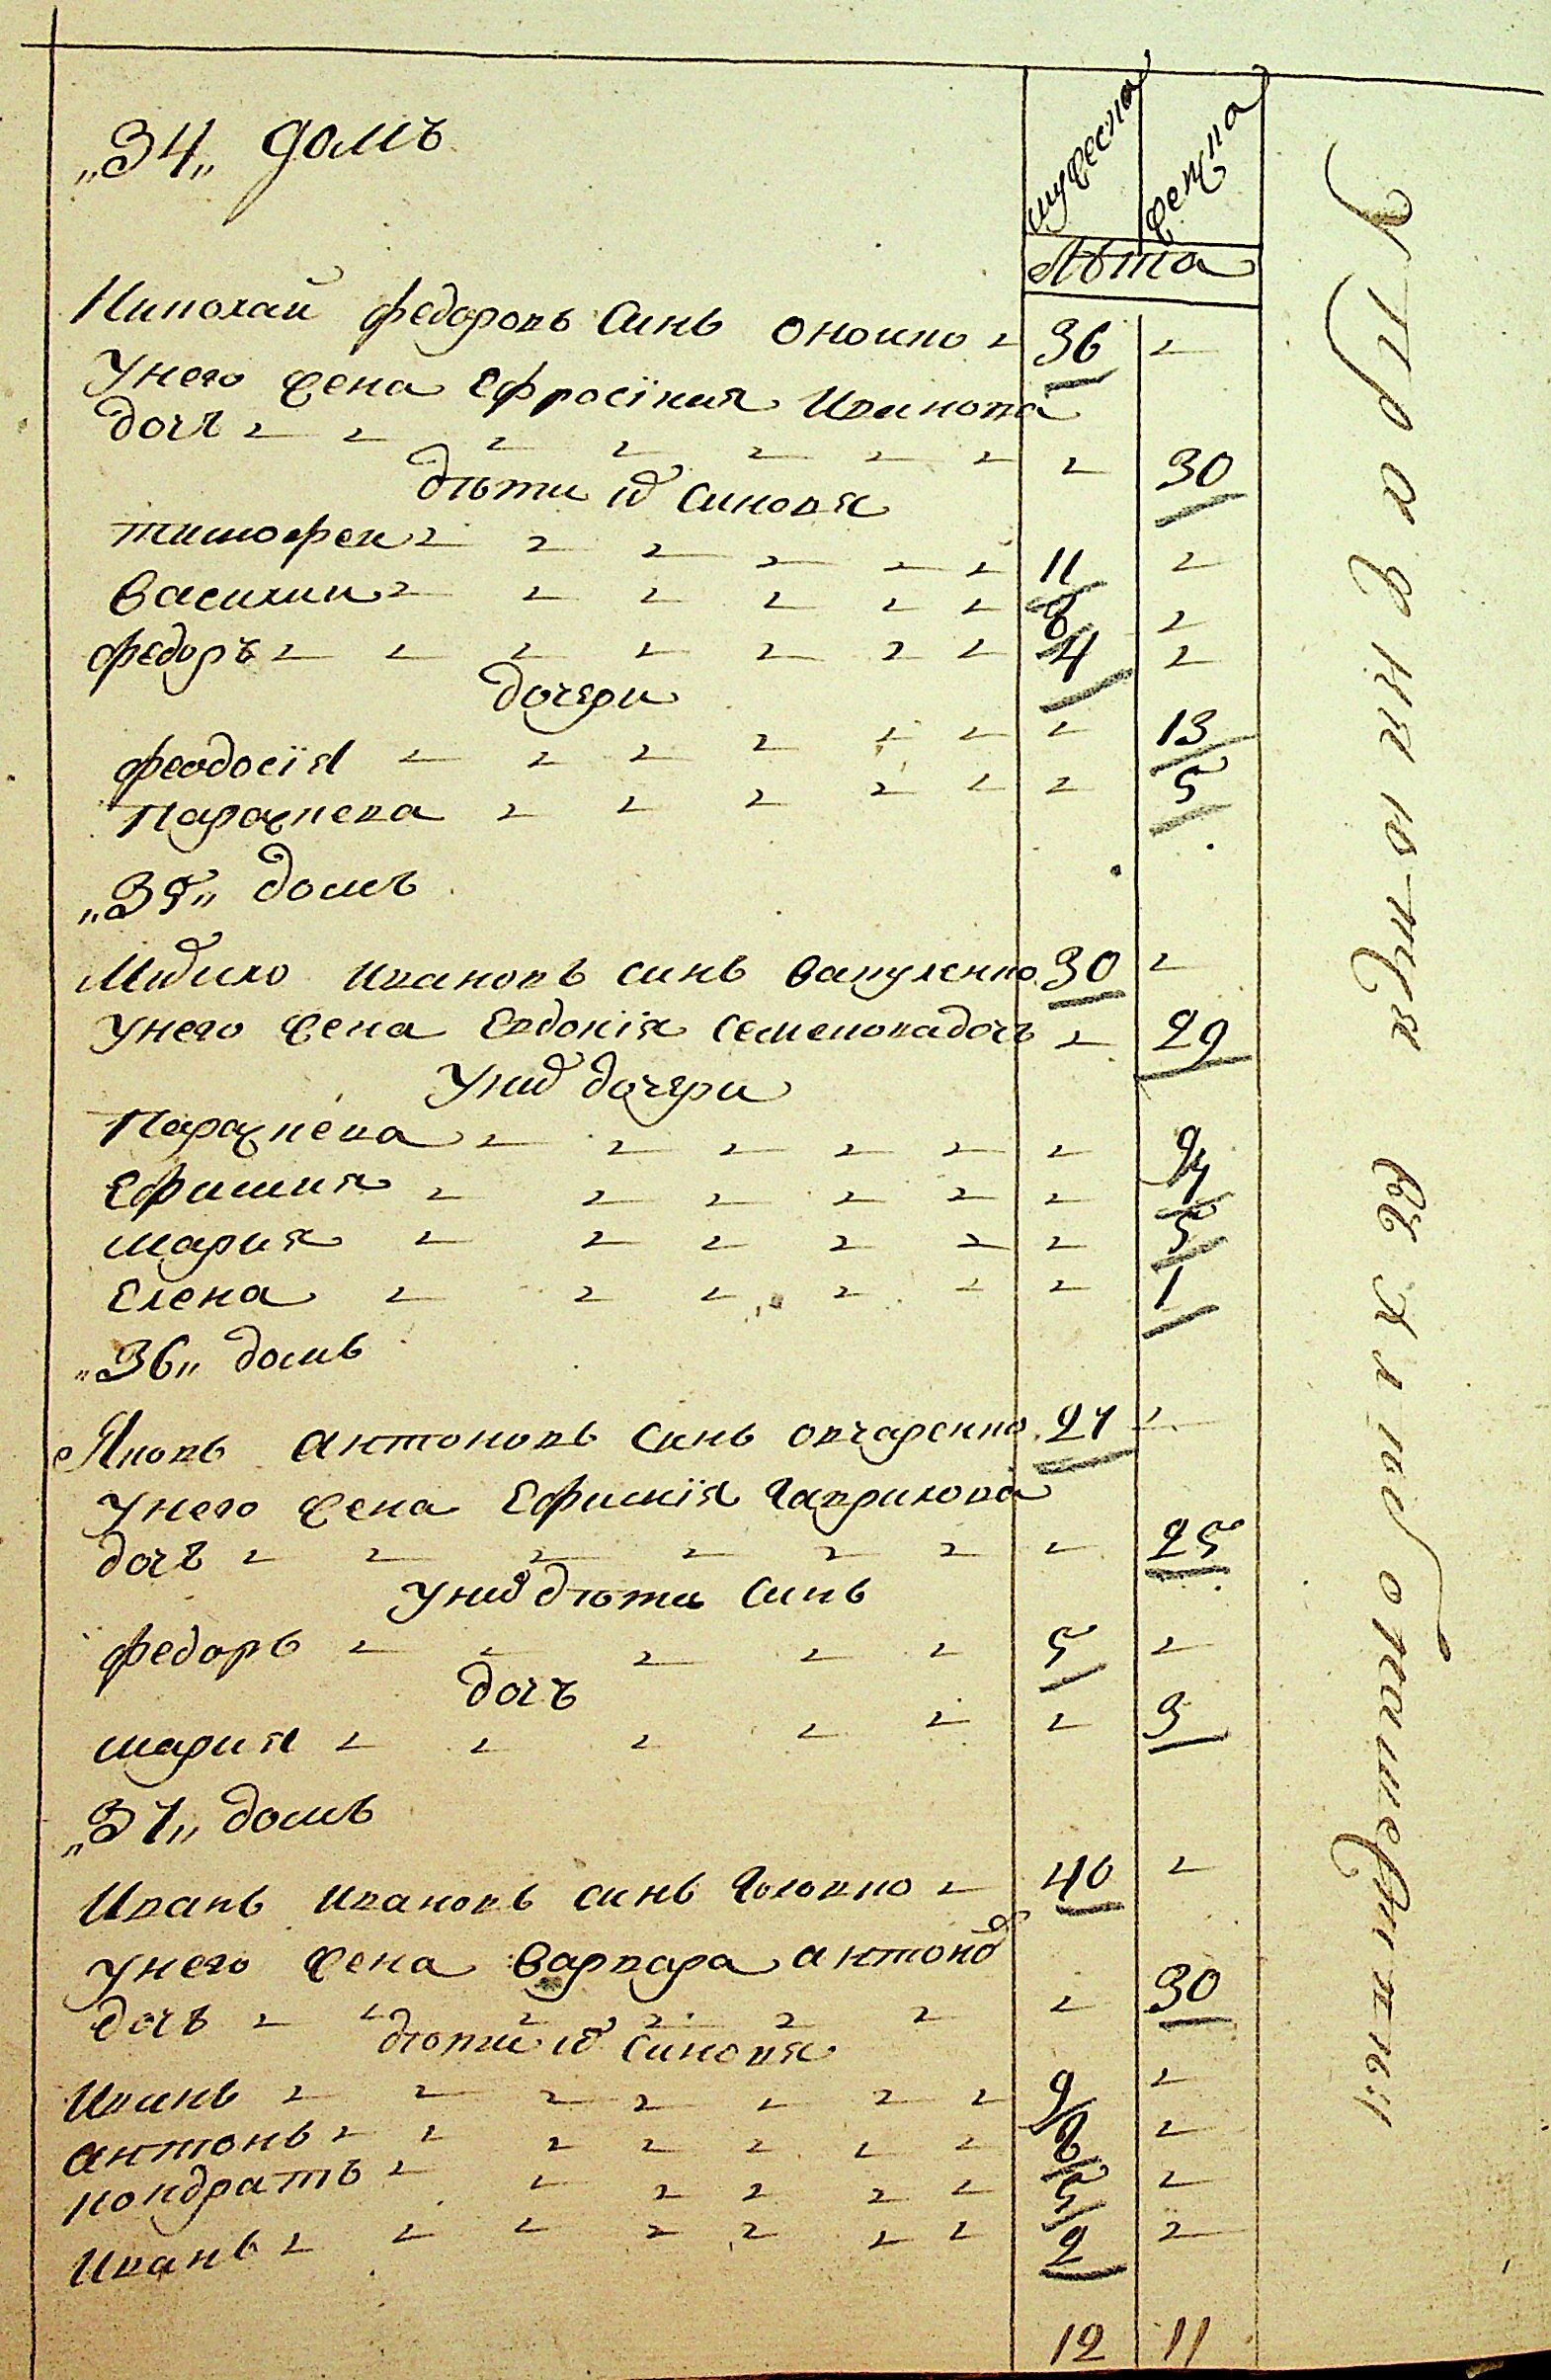 „34„ домъ
мужеска
женска
Лѣта
Николай федоровъ синъ оношко 36
Унего жена Ефросїния Иванова
дочъ 30
дѣти их синовя
тимофеи 11
василии 8
федоръ 4
дочери
феодосїя 13
Параскева 5
„35„ домъ
Михило ивановъ синъ вакуленко 30
унего жена Евдокїя семеновадочъ 29
Уних дочери
Параскева 9
Ефимия 7
мария 5
Елена 1
„36„ домъ
Яковъ антоновъ синъ овчаренко 27
унего жена Ефимїя Гаврилова
дочъ 25
уних дѣти синъ
федоръ 5
дочъ
мария 3
„37„ домъ
Иванъ ивановъ синъ Головко 40
унего жена варвара антонов
дочъ 30
дѣти их синовя
Иванъ 9
антонъ 8
кондратъ 5
Иванъ 2
12 11